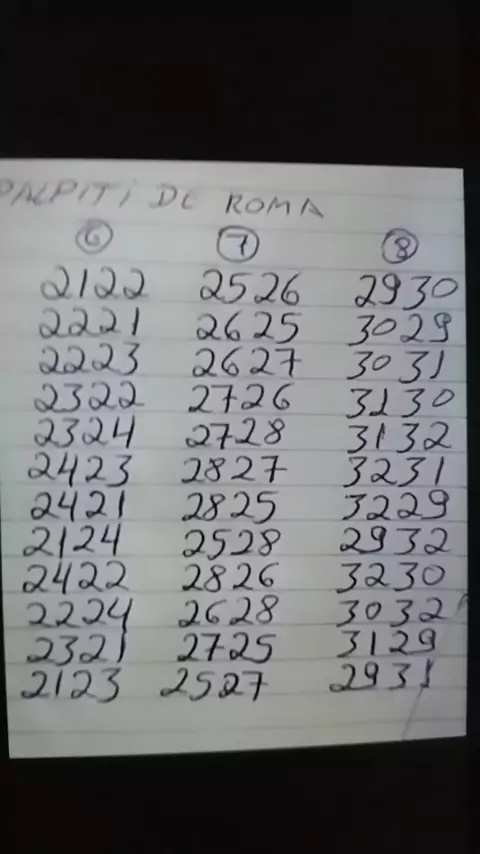 PALPITI DE ROMA
6 7 8
2122 2526 2930
2221 2625 3029
2223 2627 3031
2322 2726 3130
2324 2728 3132
2423 2827 3231
2421 2825 3229
2124 2528 2932
2422 2826 3230
2224 2628 3032
2321 2725 3129
2123 2527 2931